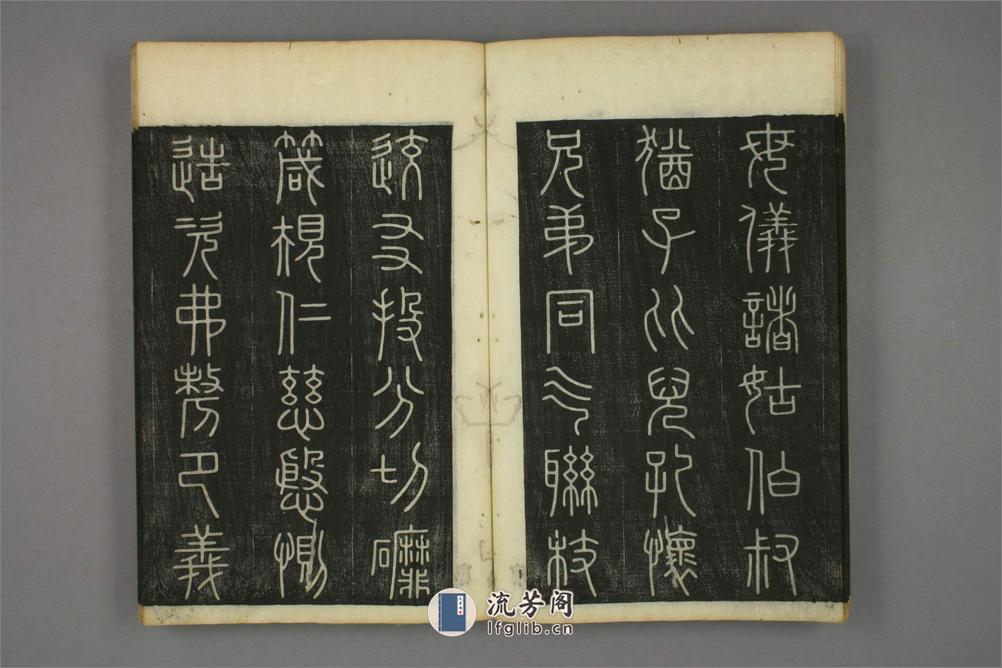 母儀諸姑伯叔
猶子比兒孔懷
兄弟同气聯枝
䢒友投分切䃺
箴規仁慈慇惻
造次弗卪義
流芳阁
lfglib.cn